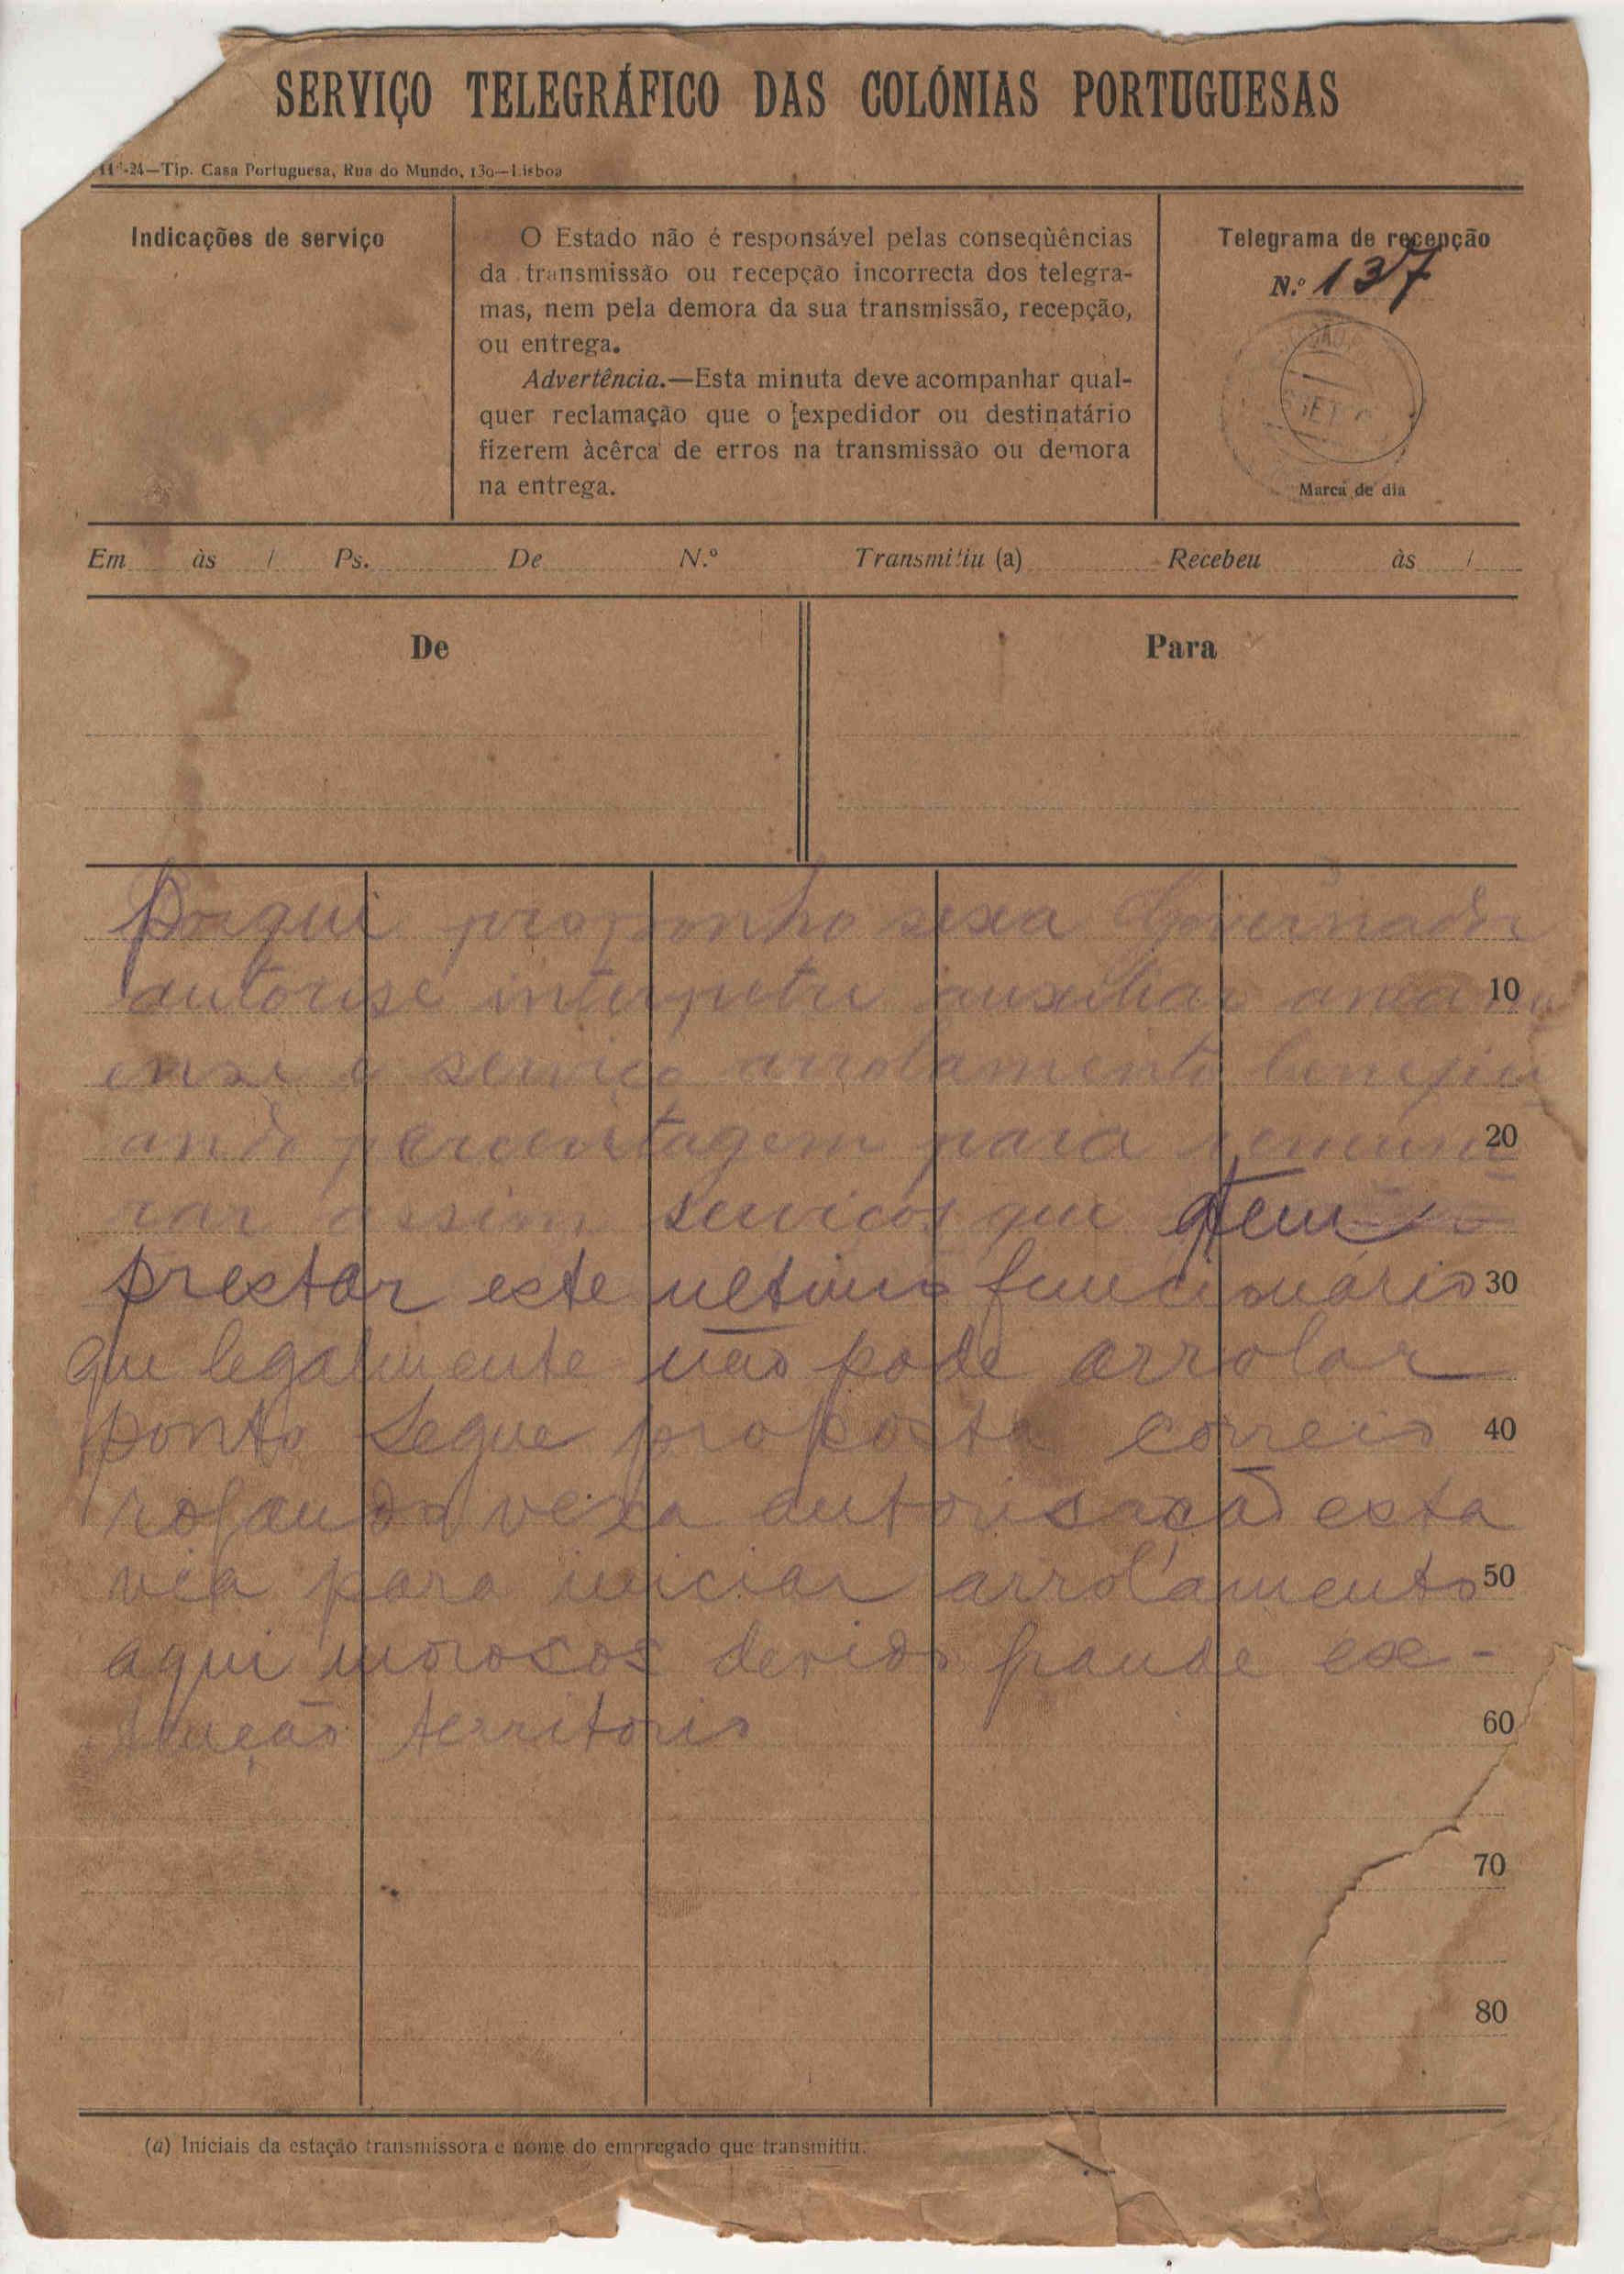 SERVIÇO TELEGRÁFICO DAS COLÓNIAS PORTUGUESAS
24—Tip. Casa Portuguesa, Rua do Mundo, 130—Lisboa
Indicações de serviço
O Estado não é responsável pelas conseqùências
da transmissão ou recepção incorrecta dos telegra-
mas, nem pela demora da sua transmissão, recepção,
ou entrega.
Advertência.—Esta minuta deve acompanhar qual-
quer reclamação que o expedidor ou destinatário
fizerem àcêrca de erros na transmissão ou demora
na entrega.
Telegrama de recepção
N.º 137
Marca de dia
Em às / Ps. De N.º Transmitiu (a) Recebeu às /
De
Para
proponho sexa Governador
autorise interpetre auxiliar 10
serviço arrolamento
ando percentagem para 20
rar assim serviços que tem
prestar este ultimo funcionário 30
que legalmente não pode arrolar
ponto Segue proposta correio 40
rogando vexa autorisação esta
via para iniciar arrolamento 50
aqui morosos devido grande ex-
tenção territorio 60
70
80
(a) Iniciais da estação transmissora e nome do empregado que transmitiu.